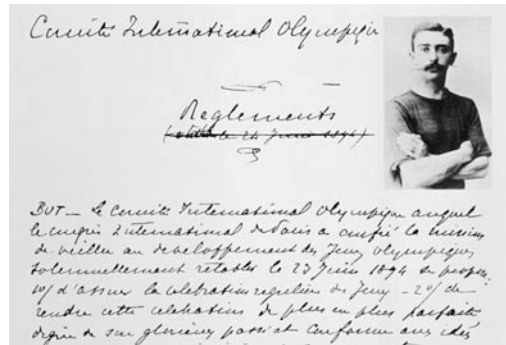 Comité International Olympique
Règlements
(établis le 24 Juin 1894)
BUT _ Le Comité International Olympique auquel
le congrès International de Paris a confié la mission
de veiller au développement des Jeux olympiques
solennellement rétablis le 23 Juin 1894 se propose:
1o/ d'assurer la célébration régulière des Jeux _ 2o/ de
rendre cette célébration de plus en plus parfaite
digne de son glorieux passé et conforme aux idées